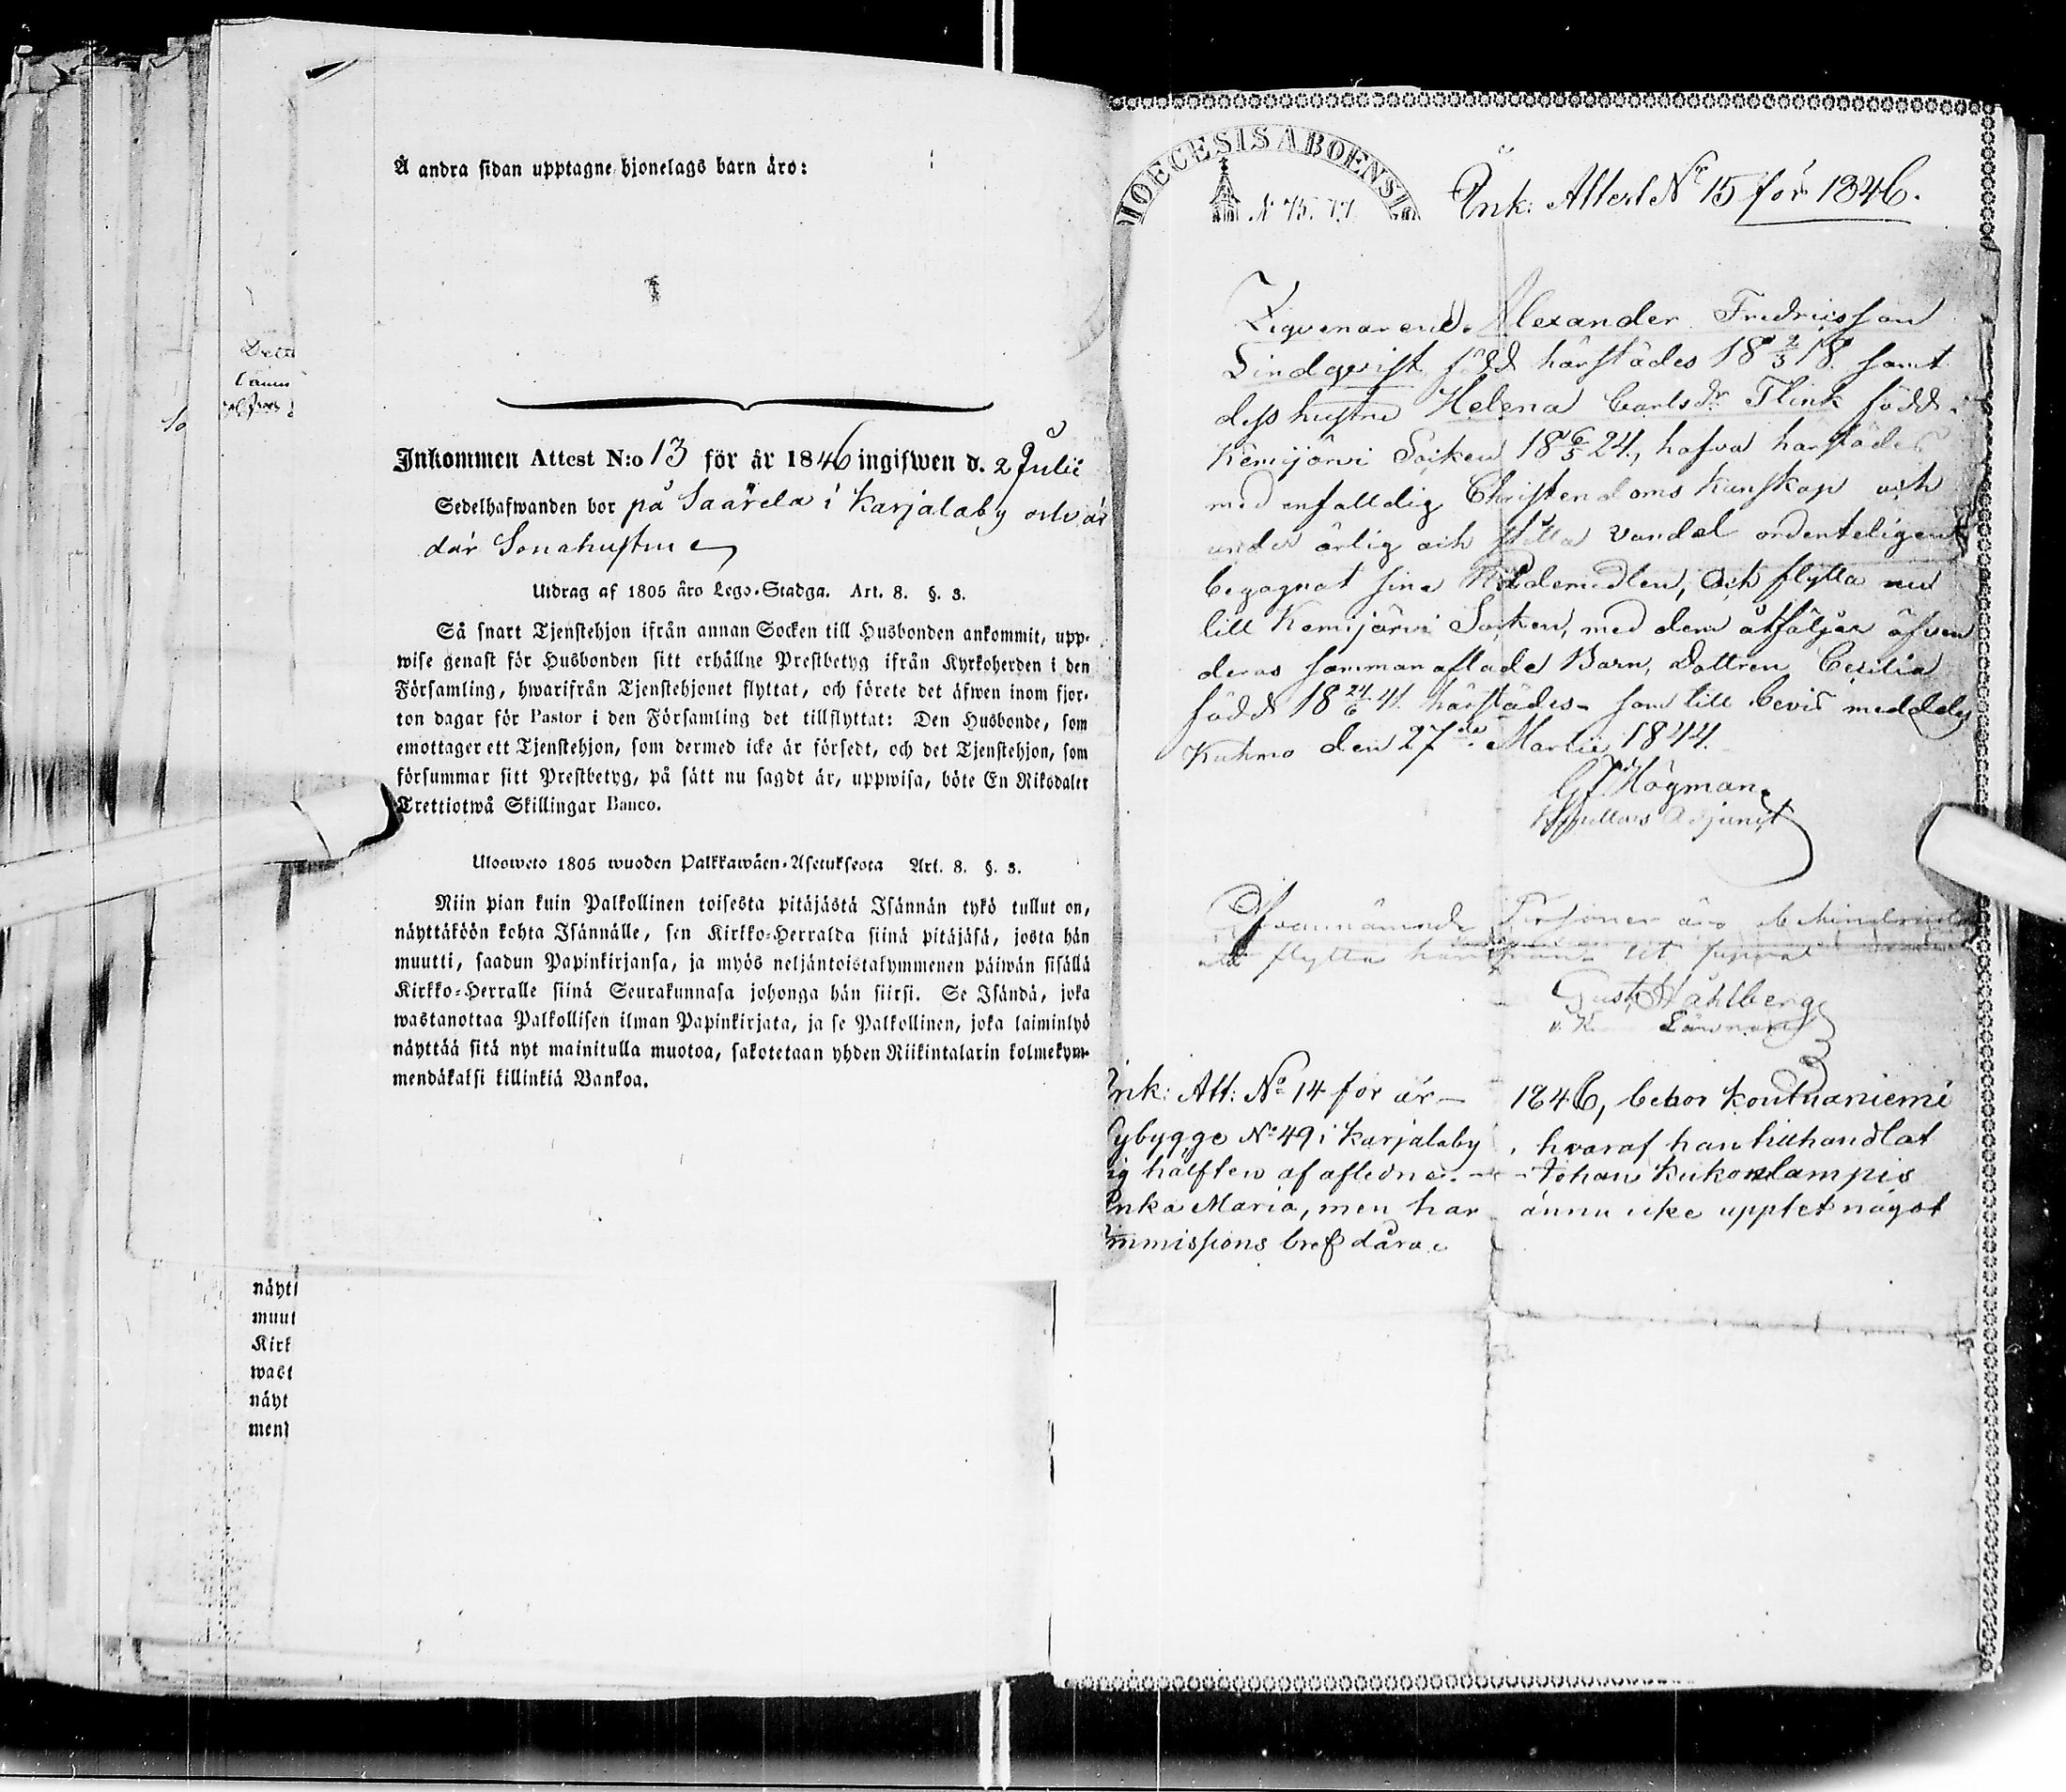 Å andra sidan upptagne hjonelags barn äro:
Inkommen Attest N:o 13 för år 1846 ingifwen d. 2 Julii
Sedelhafwanden bor på Saarela i Karjalaby och är
där Sonahustru
Utdrag af 1805 års Lego-Stadga. Art. 8. §. 3.
Så snart Tjenstehjon ifrån annan Socken till Husbonden ankommit, upp-
wise genast för Husbonden sitt erhållne Prestbetyg ifrån Kyrkoherden i den
Församling, hwarifrån Tjenstehjonet flyttat, och förete det äfwen inom fjor-
ton dagar för Pastor i den Församling det tillflyttat: Den Husbonde, som
emottager ett Tjenstehjon, som dermed icke är försedt, och det Tjenstehjon, som
försummar sitt Prestbetyg, på sätt nu sagdt är, uppwisa, böte En Riksdaler
Trettiotwå Skillingar Banco.
Ulosweto 1805 wuoden Palkkawäen-Asetuksesta Art. 8. §. 3.
Niin pian kuin Palkollinen toisesta pitäjästä Isännän tykö tullut on,
näyttäköön kohta Isännälle, sen Kirkko-Herralda siinä pitäjäsä, josta hän
muutti, saadun Papinkirjansa, ja myös neljäntoistakymmenen päiwän sisällä
Kirkko-Herralle siinä Seurakunnasa johonga hän siirsi. Se Isändä, joka
wastanottaa Palkollisen ilman Papinkirjata, ja se Palkollinen, joka laiminlyö
näyttää sitä nyt mainitulla muotoa, sakotetaan yhden Riikintalarin kolmekym-
mendäkaksi killinkiä Bankoa.
näyt
muut
Kirk
wast
näyt
mend
DIOECESIS ABOENSI
N 75. 77
Ink: Attest No 15 för 1846.
Alexander Fredricsson
Lindqvist, född härstädes 18 2/3 18. samt
dess hustru Helena Carlsdr Flink född i
Kemijärvi Socken 18 6/5 24., hafva härstädes
med enfalldig Christendoms kunskap och
under ärlig och stilla vandel ordenteligen
begagnat sina Nådemedlen, och flytta nu
till Kemijärvi Socken, med dem åtföljer äfven
deras sammanaflade Barn, Dottren Cecilia
född 18 24/6 41. härstädes - som till bevis meddelas
Kuhmo den 27de Martii 1844.
G F Högman
Kapellans Adjunct
Ofvannämnde Personer äro obehindrade
att flytta härifrån
Gust. Ståhlberg
v. K. Länsman
Ink: Att: No 14 för år - 1846, bebor Koutuaniemi
Nybygge No 49 i Karjalaby, hvaraf han tillhandlat
sig hälften af afledne - Johan Kukonlampis
Enka Maria, men har ännu icke upptet något
Immissions bref dära.